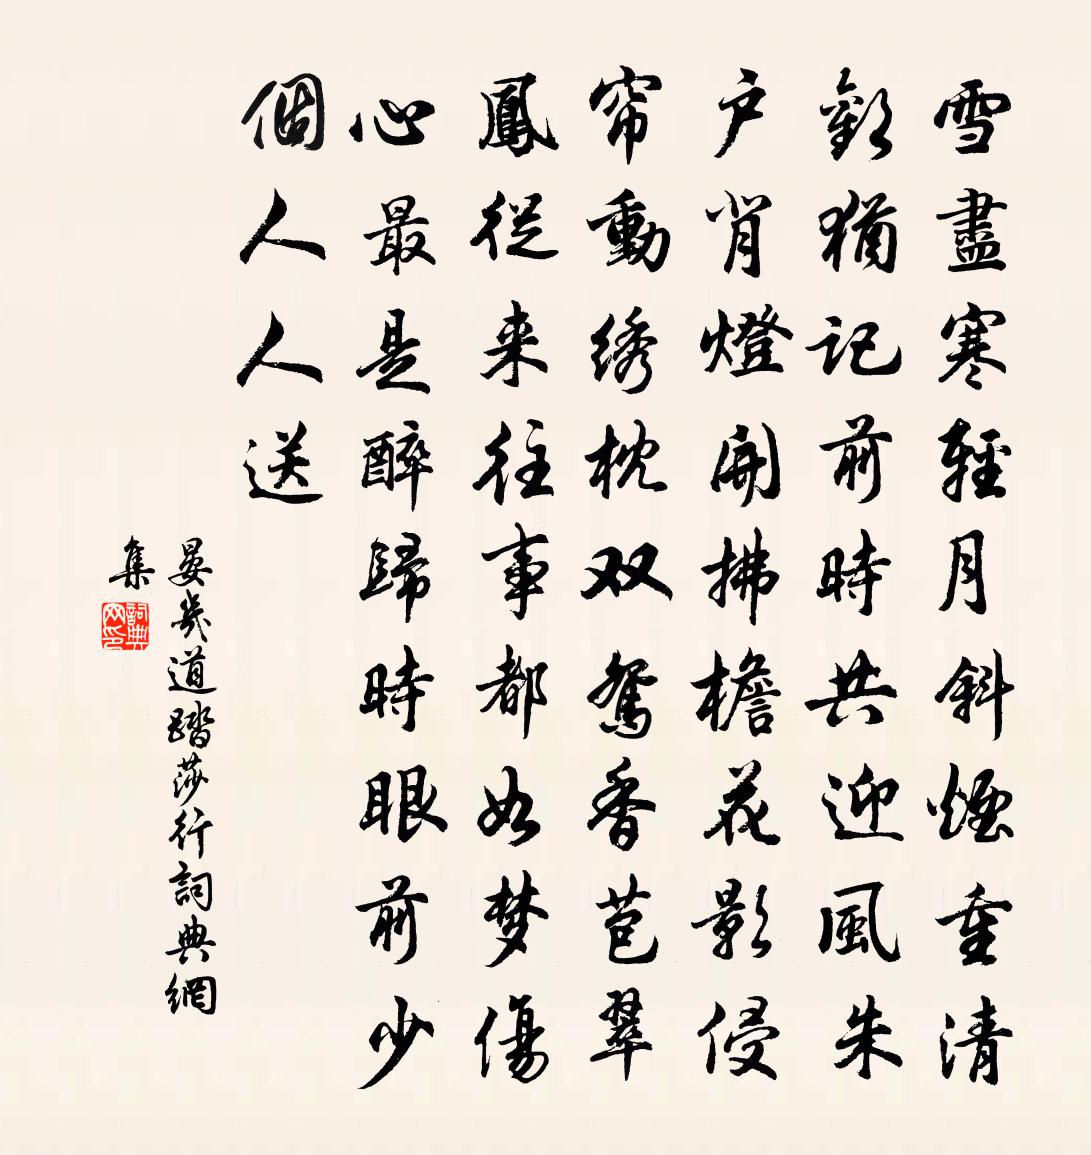 雪盡寒輕月斜煙重清
歡猶記前時共迎風朱
户背燈開拂檐花影侵
帘動绣枕双鴛香苞翠
鳳從来往事都如梦傷
心最是醉歸時眼前少
個人人送
晏幾道踏莎行詞典網
集
詞典
网印